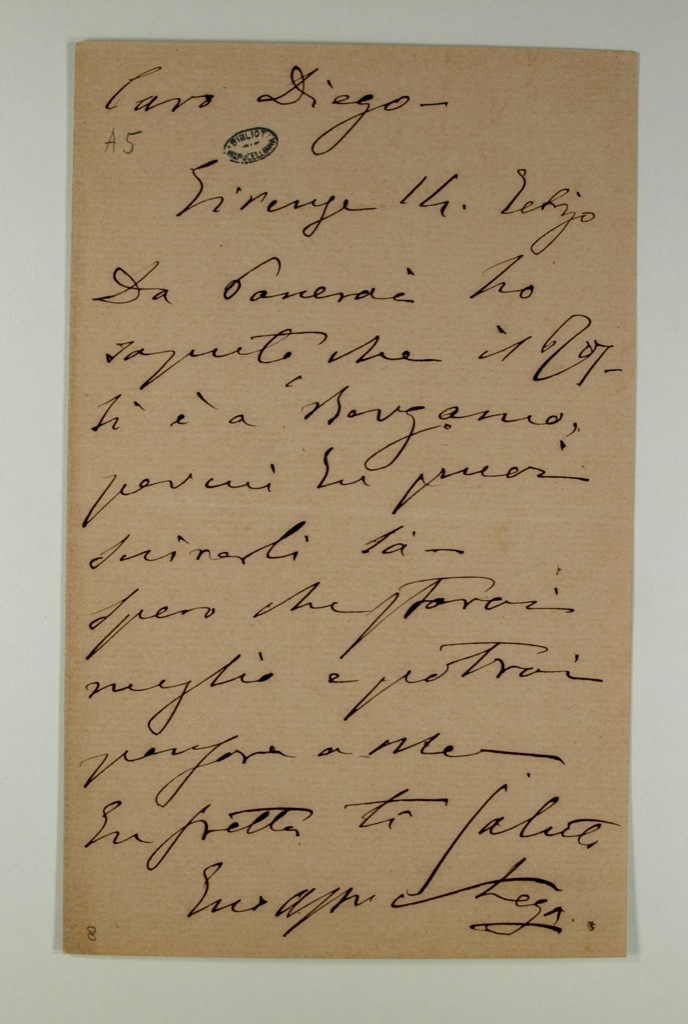 Caro Diego –
A5
BIBLIOT MARUCELLIANA
Firenze 14.
Da Panerai ho
saputo che il
ti è a Bergamo,
percui tu puoi
scriverli là –
spero che starai
meglio e potrai
pensare a me
In fretta ti Saluto
Tuo aff Lega
8